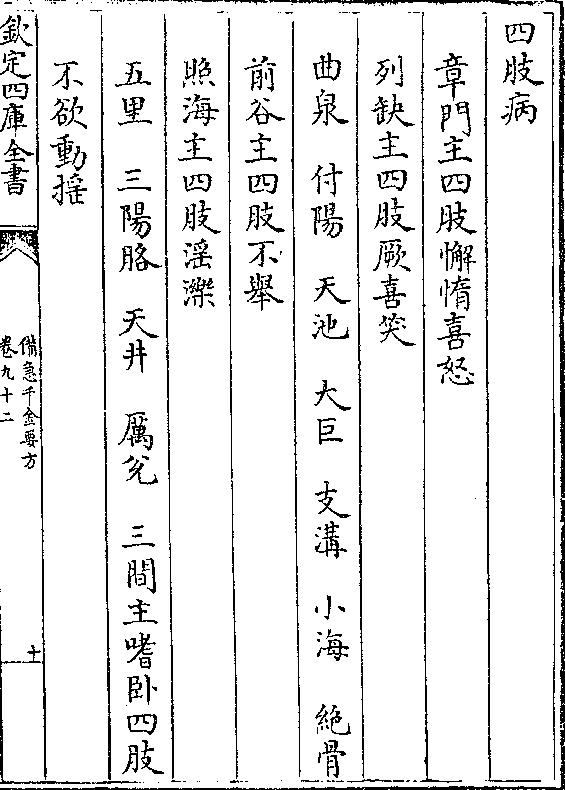 四肢病
章門主四肢懈惰喜怒
列缺主四肢厥喜笑
曲泉 付陽 天池 大巨 支溝 小海 絶骨
前谷主四肢不舉
照海主四肢淫濼
五里 三陽胳 天井 厲兊 三間主嗜卧四肢
不欲動揺
欽定四庫全書
備急千金要方
卷九十二
十